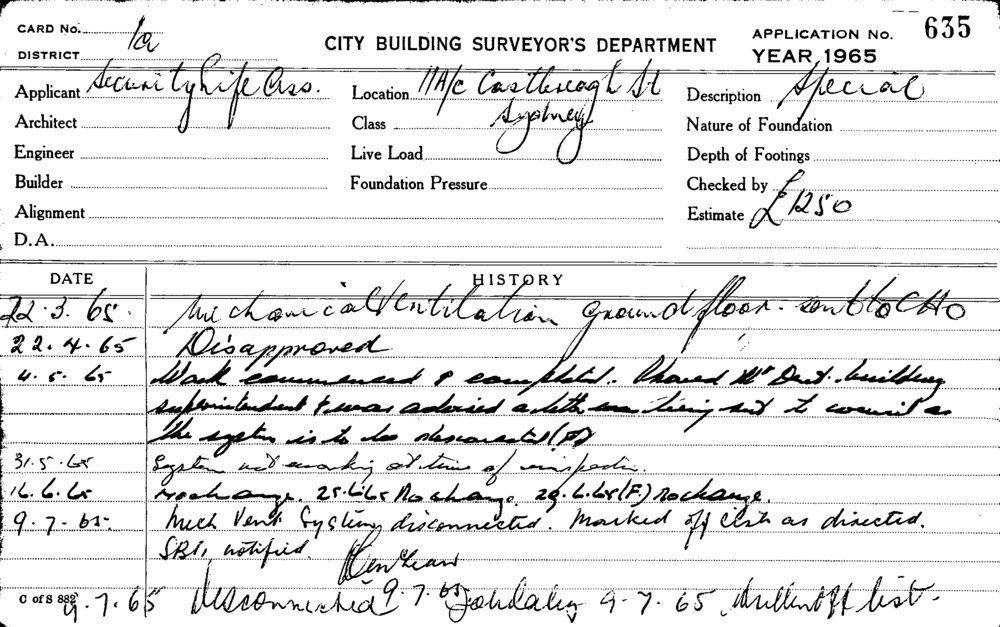 CARD No. 1a
DISTRICT
CITY BUILDING SURVEYOR'S DEPARTMENT
APPLICATION No. 635
YEAR 1965
Applicant Security Life Ass. Location 11A/c Castlereagh St Description Special
Architect Class Sydney Nature of Foundation
Engineer Live Load Depth of Footings
Builder Foundation Pressure Checked by
Alignment Estimate £1250
D.A.
DATE HISTORY
22.3.65. Mechanical Ventilation ground floor - sent to CHO
22.4.65 Disapproved
4.5.65 Work commenced & completed. Phoned Mr Dent. building
superintendent & was advised a letter was being sent to council as
the system is to be disconnected (F)
31.5.65 System not working at time of inspection.
16.6.65 No change. 25.6.65 No change. 29.6.65 (F.) no change.
9.7.65 Mech Vent System disconnected. Marked off list as directed.
SBI, notified.
C of S 882 9.7.65 Disconnected 9.7.65 9.7.65 off list.